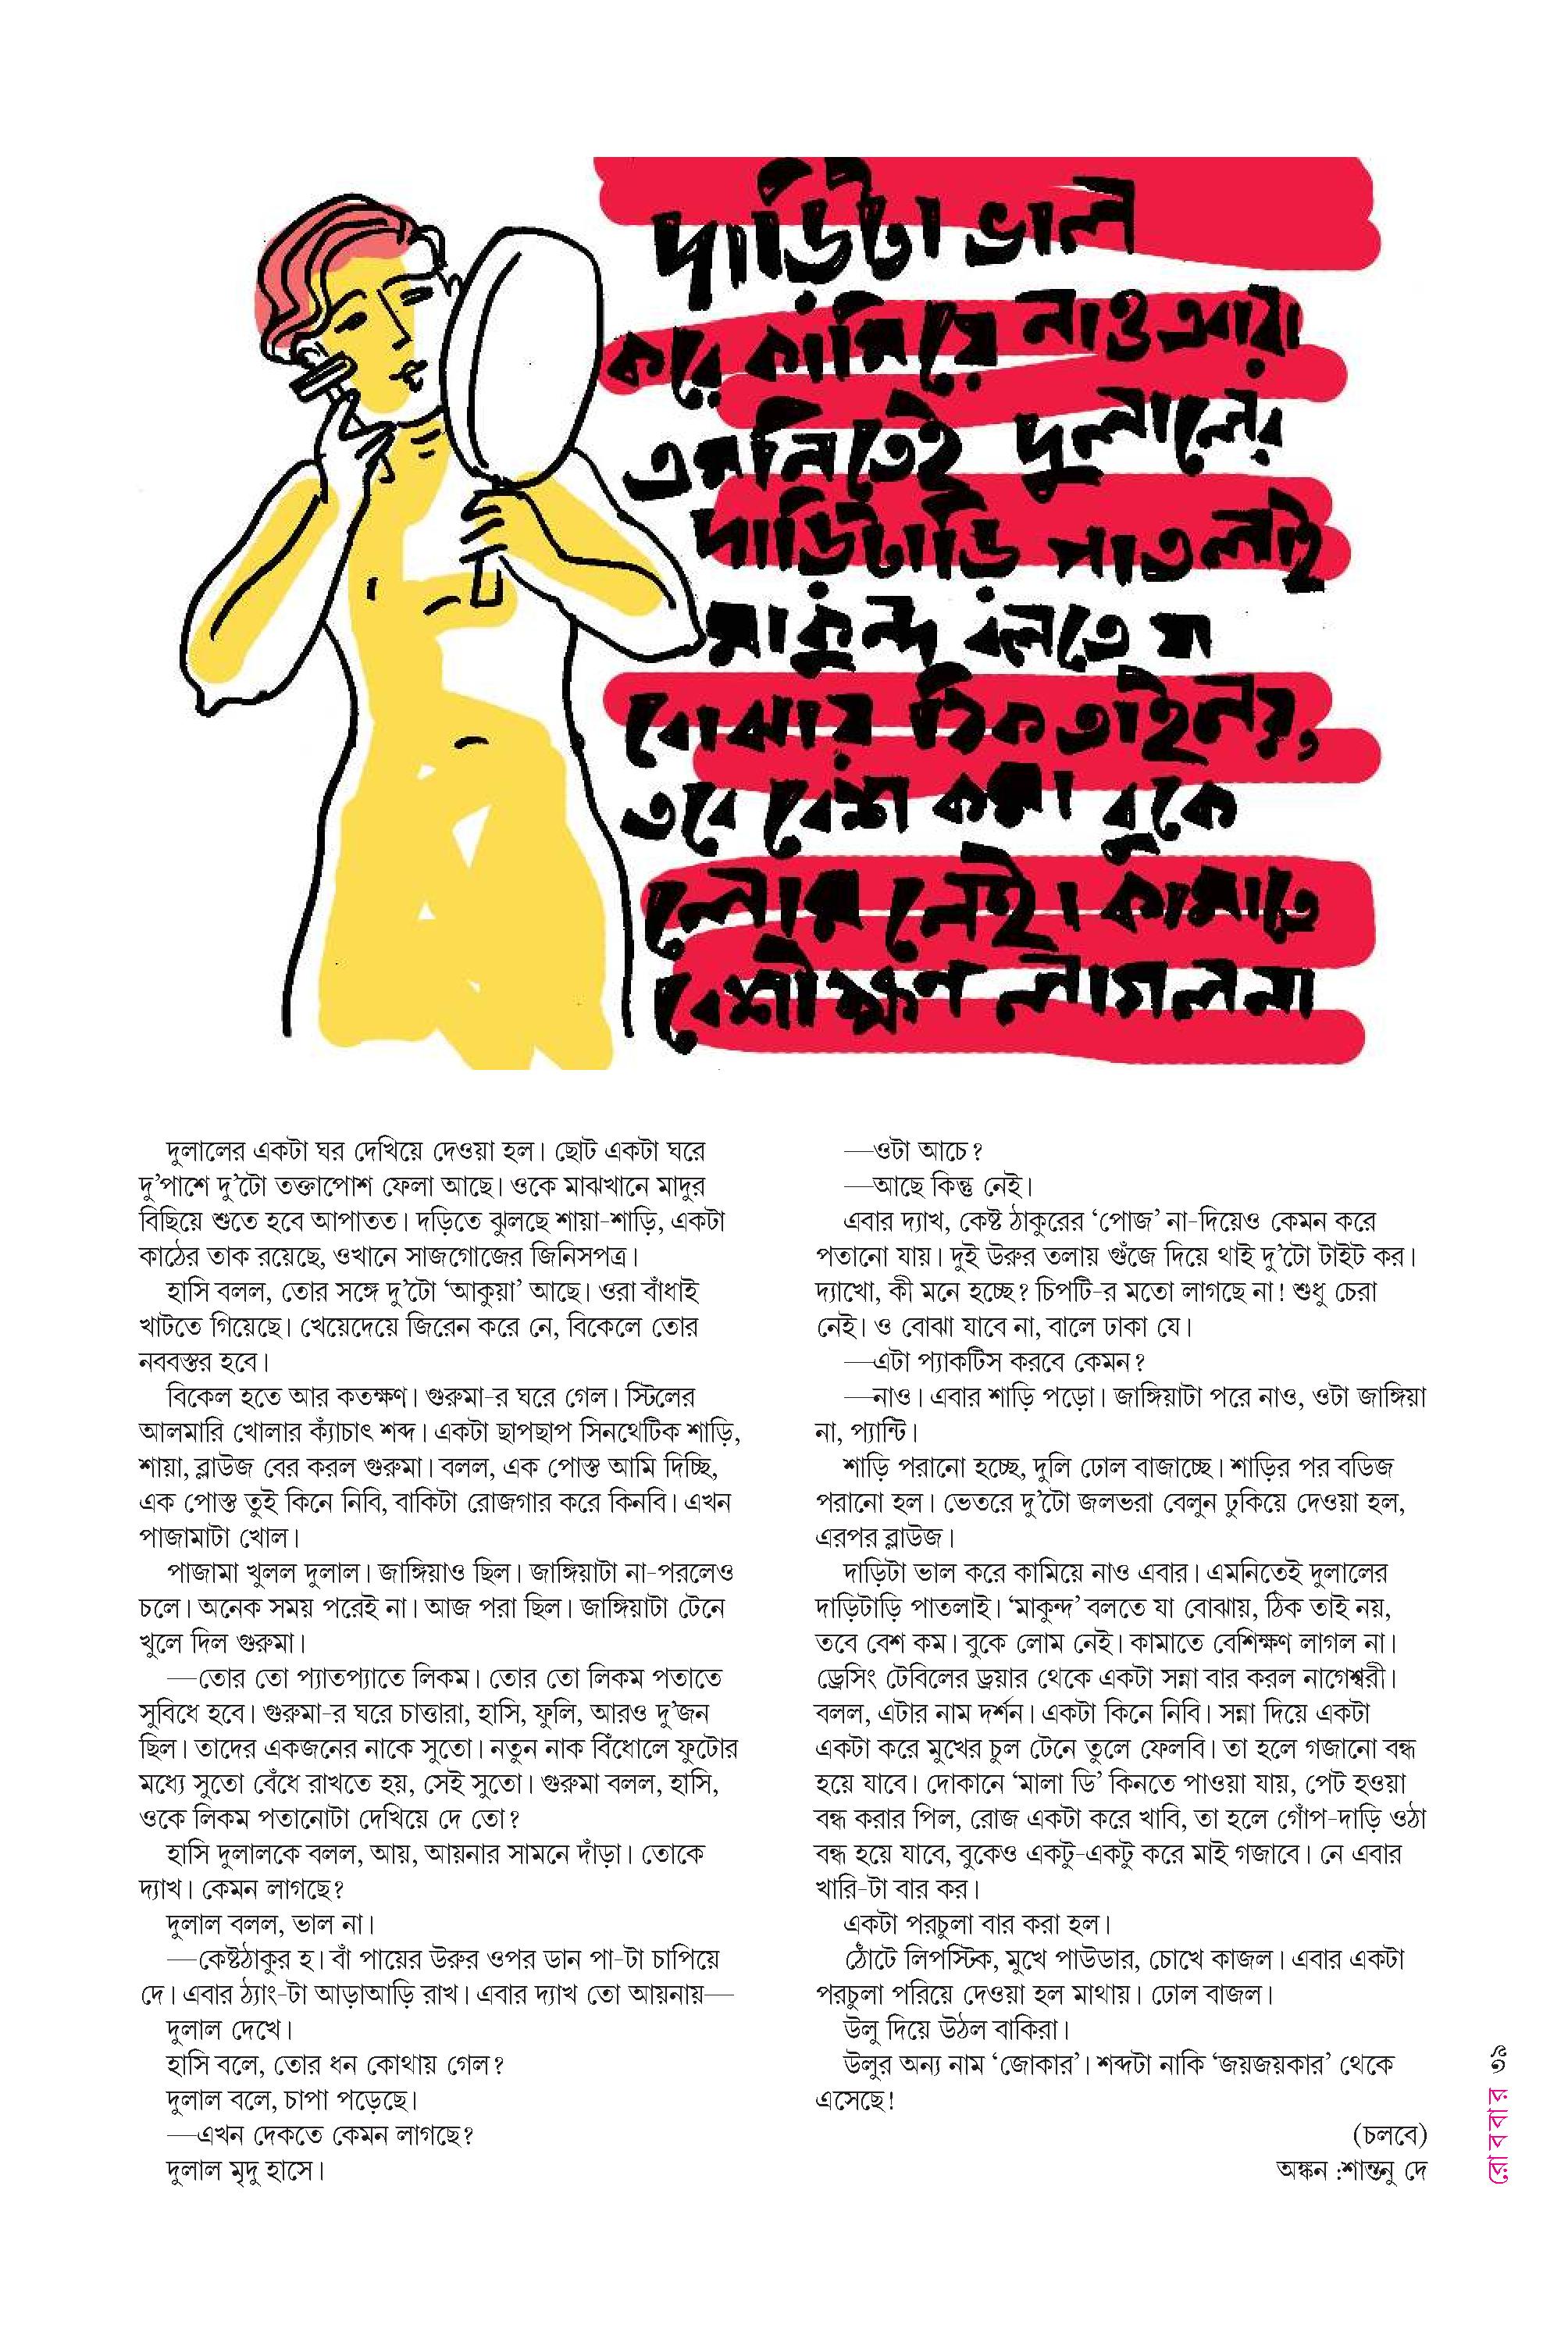 দাড়িটা ভাল
করে কামিয়ে নাও এবার।
এমনিতেই দুলালের
দাড়িটাড়ি পাতলাই
মাকুন্দ বলতে যা
বোঝায় ঠিক তাই নয়,
তবে বেশ কম। বুকে
লোম নেই। কামাতে
বেশীক্ষণ লাগল না
দুলালের একটা ঘর দেখিয়ে দেওয়া হল। ছোট একটা ঘরে
দু’পাশে দু’টো তক্তাপোশ ফেলা আছে। ওকে মাঝখানে মাদুর
বিছিয়ে শুতে হবে আপাতত। দড়িতে ঝুলছে শায়া-শাড়ি, একটা
কাঠের তাক রয়েছে, ওখানে সাজগোজের জিনিসপত্র।
হাসি বলল, তোর সঙ্গে দু’টো ‘আকুয়া’ আছে। ওরা বাঁধাই
খাটতে গিয়েছে। খেয়েদেয়ে জিরেন করে নে, বিকেলে তোর
নববস্তর হবে।
বিকেল হতে আর কতক্ষণ। গুরুমা-র ঘরে গেল। স্টিলের
আলমারি খোলার ক্যাঁচাৎ শব্দ। একটা ছাপছাপ সিনথেটিক শাড়ি,
শায়া, ব্লাউজ বের করল গুরুমা। বলল, এক পোস্ত আমি দিচ্ছি,
এক পোস্ত তুই কিনে নিবি, বাকিটা রোজগার করে কিনবি। এখন
পাজামাটা খোল।
পাজামা খুলল দুলাল। জাঙ্গিয়াও ছিল। জাঙ্গিয়াটা না-পরলেও
চলে। অনেক সময় পরেই না। আজ পরা ছিল। জাঙ্গিয়াটা টেনে
খুলে দিল গুরুমা।
—তোর তো প্যাতপ্যাতে লিকম। তোর তো লিকম পতাতে
সুবিধে হবে। গুরুমা-র ঘরে চাত্তারা, হাসি, ফুলি, আরও দু’জন
ছিল। তাদের একজনের নাকে সুতো। নতুন নাক বিঁধোলে ফুটোর
মধ্যে সুতো বেঁধে রাখতে হয়, সেই সুতো। গুরুমা বলল, হাসি,
ওকে লিকম পতানোটা দেখিয়ে দে তো?
হাসি দুলালকে বলল, আয়, আয়নার সামনে দাঁড়া। তোকে
দ্যাখ। কেমন লাগছে?
দুলাল বলল, ভাল না।
—কেষ্টঠাকুর হ। বাঁ পায়ের উরুর ওপর ডান পা-টা চাপিয়ে
দে। এবার ঠ্যাং-টা আড়াআড়ি রাখ। এবার দ্যাখ তো আয়নায়—
দুলাল দেখে।
হাসি বলে, তোর ধন কোথায় গেল?
দুলাল বলে, চাপা পড়েছে।
—এখন দেকতে কেমন লাগছে?
দুলাল মৃদু হাসে।
—ওটা আচে?
—আছে কিন্তু নেই।
এবার দ্যাখ, কেষ্ট ঠাকুরের ‘পোজ’ না-দিয়েও কেমন করে
পতানো যায়। দুই উরুর তলায় গুঁজে দিয়ে থাই দু’টো টাইট কর।
দ্যাখো, কী মনে হচ্ছে? চিপটি-র মতো লাগছে না! শুধু চেরা
নেই। ও বোঝা যাবে না, বালে ঢাকা যে।
—এটা প্যাকটিস করবে কেমন?
—নাও। এবার শাড়ি পড়ো। জাঙ্গিয়াটা পরে নাও, ওটা জাঙ্গিয়া
না, প্যান্টি।
শাড়ি পরানো হচ্ছে, দুলি ঢোল বাজাচ্ছে। শাড়ির পর বডিজ
পরানো হল। ভেতরে দু’টো জলভরা বেলুন ঢুকিয়ে দেওয়া হল,
এরপর ব্লাউজ।
দাড়িটা ভাল করে কামিয়ে নাও এবার। এমনিতেই দুলালের
দাড়িটাড়ি পাতলাই। ‘মাকুন্দ’ বলতে যা বোঝায়, ঠিক তাই নয়,
তবে বেশ কম। বুকে লোম নেই। কামাতে বেশিক্ষণ লাগল না।
ড্রেসিং টেবিলের ড্রয়ার থেকে একটা সন্না বার করল নাগেশ্বরী।
বলল, এটার নাম দর্শন। একটা কিনে নিবি। সন্না দিয়ে একটা
একটা করে মুখের চুল টেনে তুলে ফেলবি। তা হলে গজানো বন্ধ
হয়ে যাবে। দোকানে ‘মালা ডি’ কিনতে পাওয়া যায়, পেট হওয়া
বন্ধ করার পিল, রোজ একটা করে খাবি, তা হলে গোঁপ-দাড়ি ওঠা
বন্ধ হয়ে যাবে, বুকেও একটু-একটু করে মাই গজাবে। নে এবার
খারি-টা বার কর।
একটা পরচুলা বার করা হল।
ঠোঁটে লিপস্টিক, মুখে পাউডার, চোখে কাজল। এবার একটা
পরচুলা পরিয়ে দেওয়া হল মাথায়। ঢোল বাজল।
উলু দিয়ে উঠল বাকিরা।
উলুর অন্য নাম ‘জোকার’। শব্দটা নাকি ‘জয়জয়কার’ থেকে
এসেছে!
(চলবে)
অঙ্কন :শান্তনু দে
রোববার ৩৯